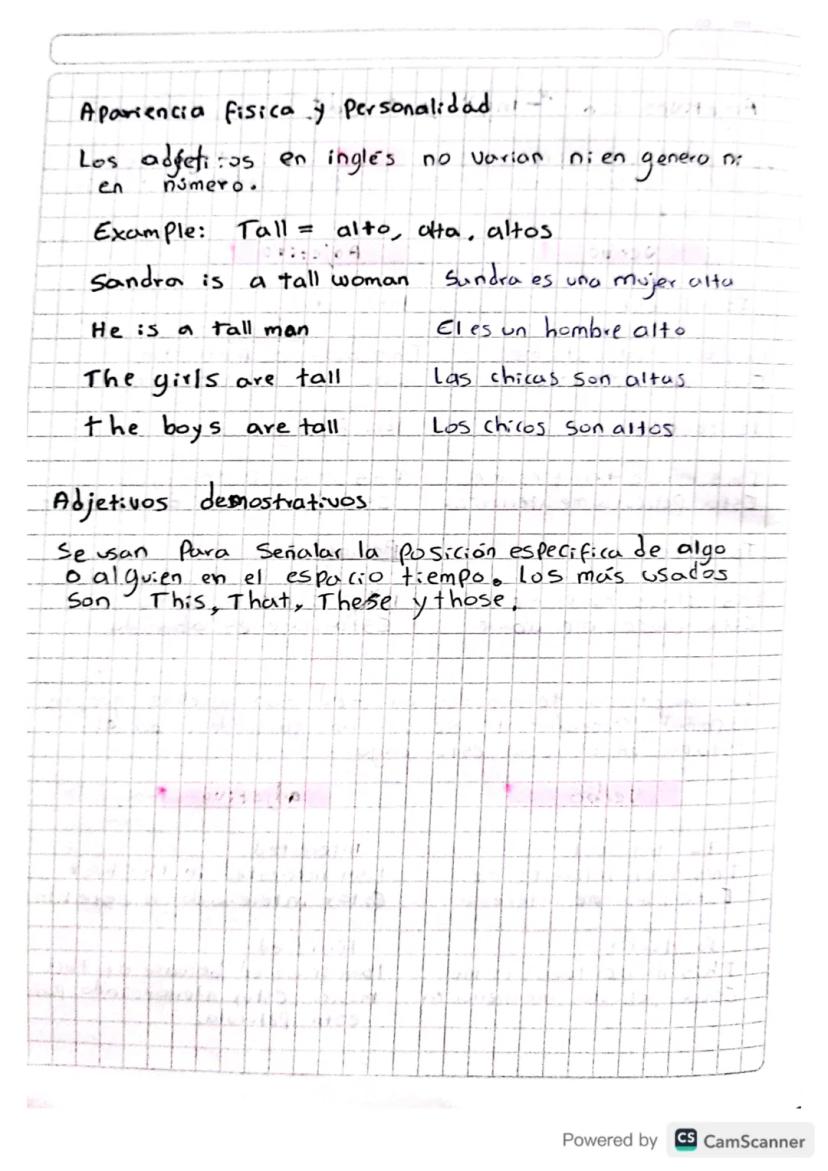 Apariencia fisica y Personalidad
Los adjetivos en inglés no varian ni en genero ni
en número.
Example: Tall = alto, alta, altos
Sandra is a tall woman Sandra es una mujer alta
He is a tall man El es un hombre alto
The girls are tall Las chicas son altas
the boys are tall Los chicos son altos
Adjetivos demostrativos
Se usan Para Señalar la Posición especifica de algo
o alguien en el espacio tiempo. Los más usados
Son This, That, These y those.
Powered by CS CamScanner